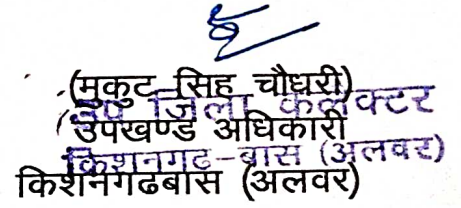 (मुकुट सिह चौधरी)
उप जिला कलक्टर
उपखण्ड अधिकारी
किशनगढ-बास (अलवर)
किशनगढबास (अलवर)